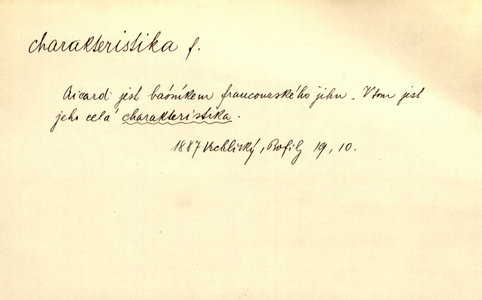 charakteristika f.
Aicard jest básníkem francouzského jihu. V tom jest
jeho celá charakteristika.
1887 Vrchlický, Profily 19, 10.